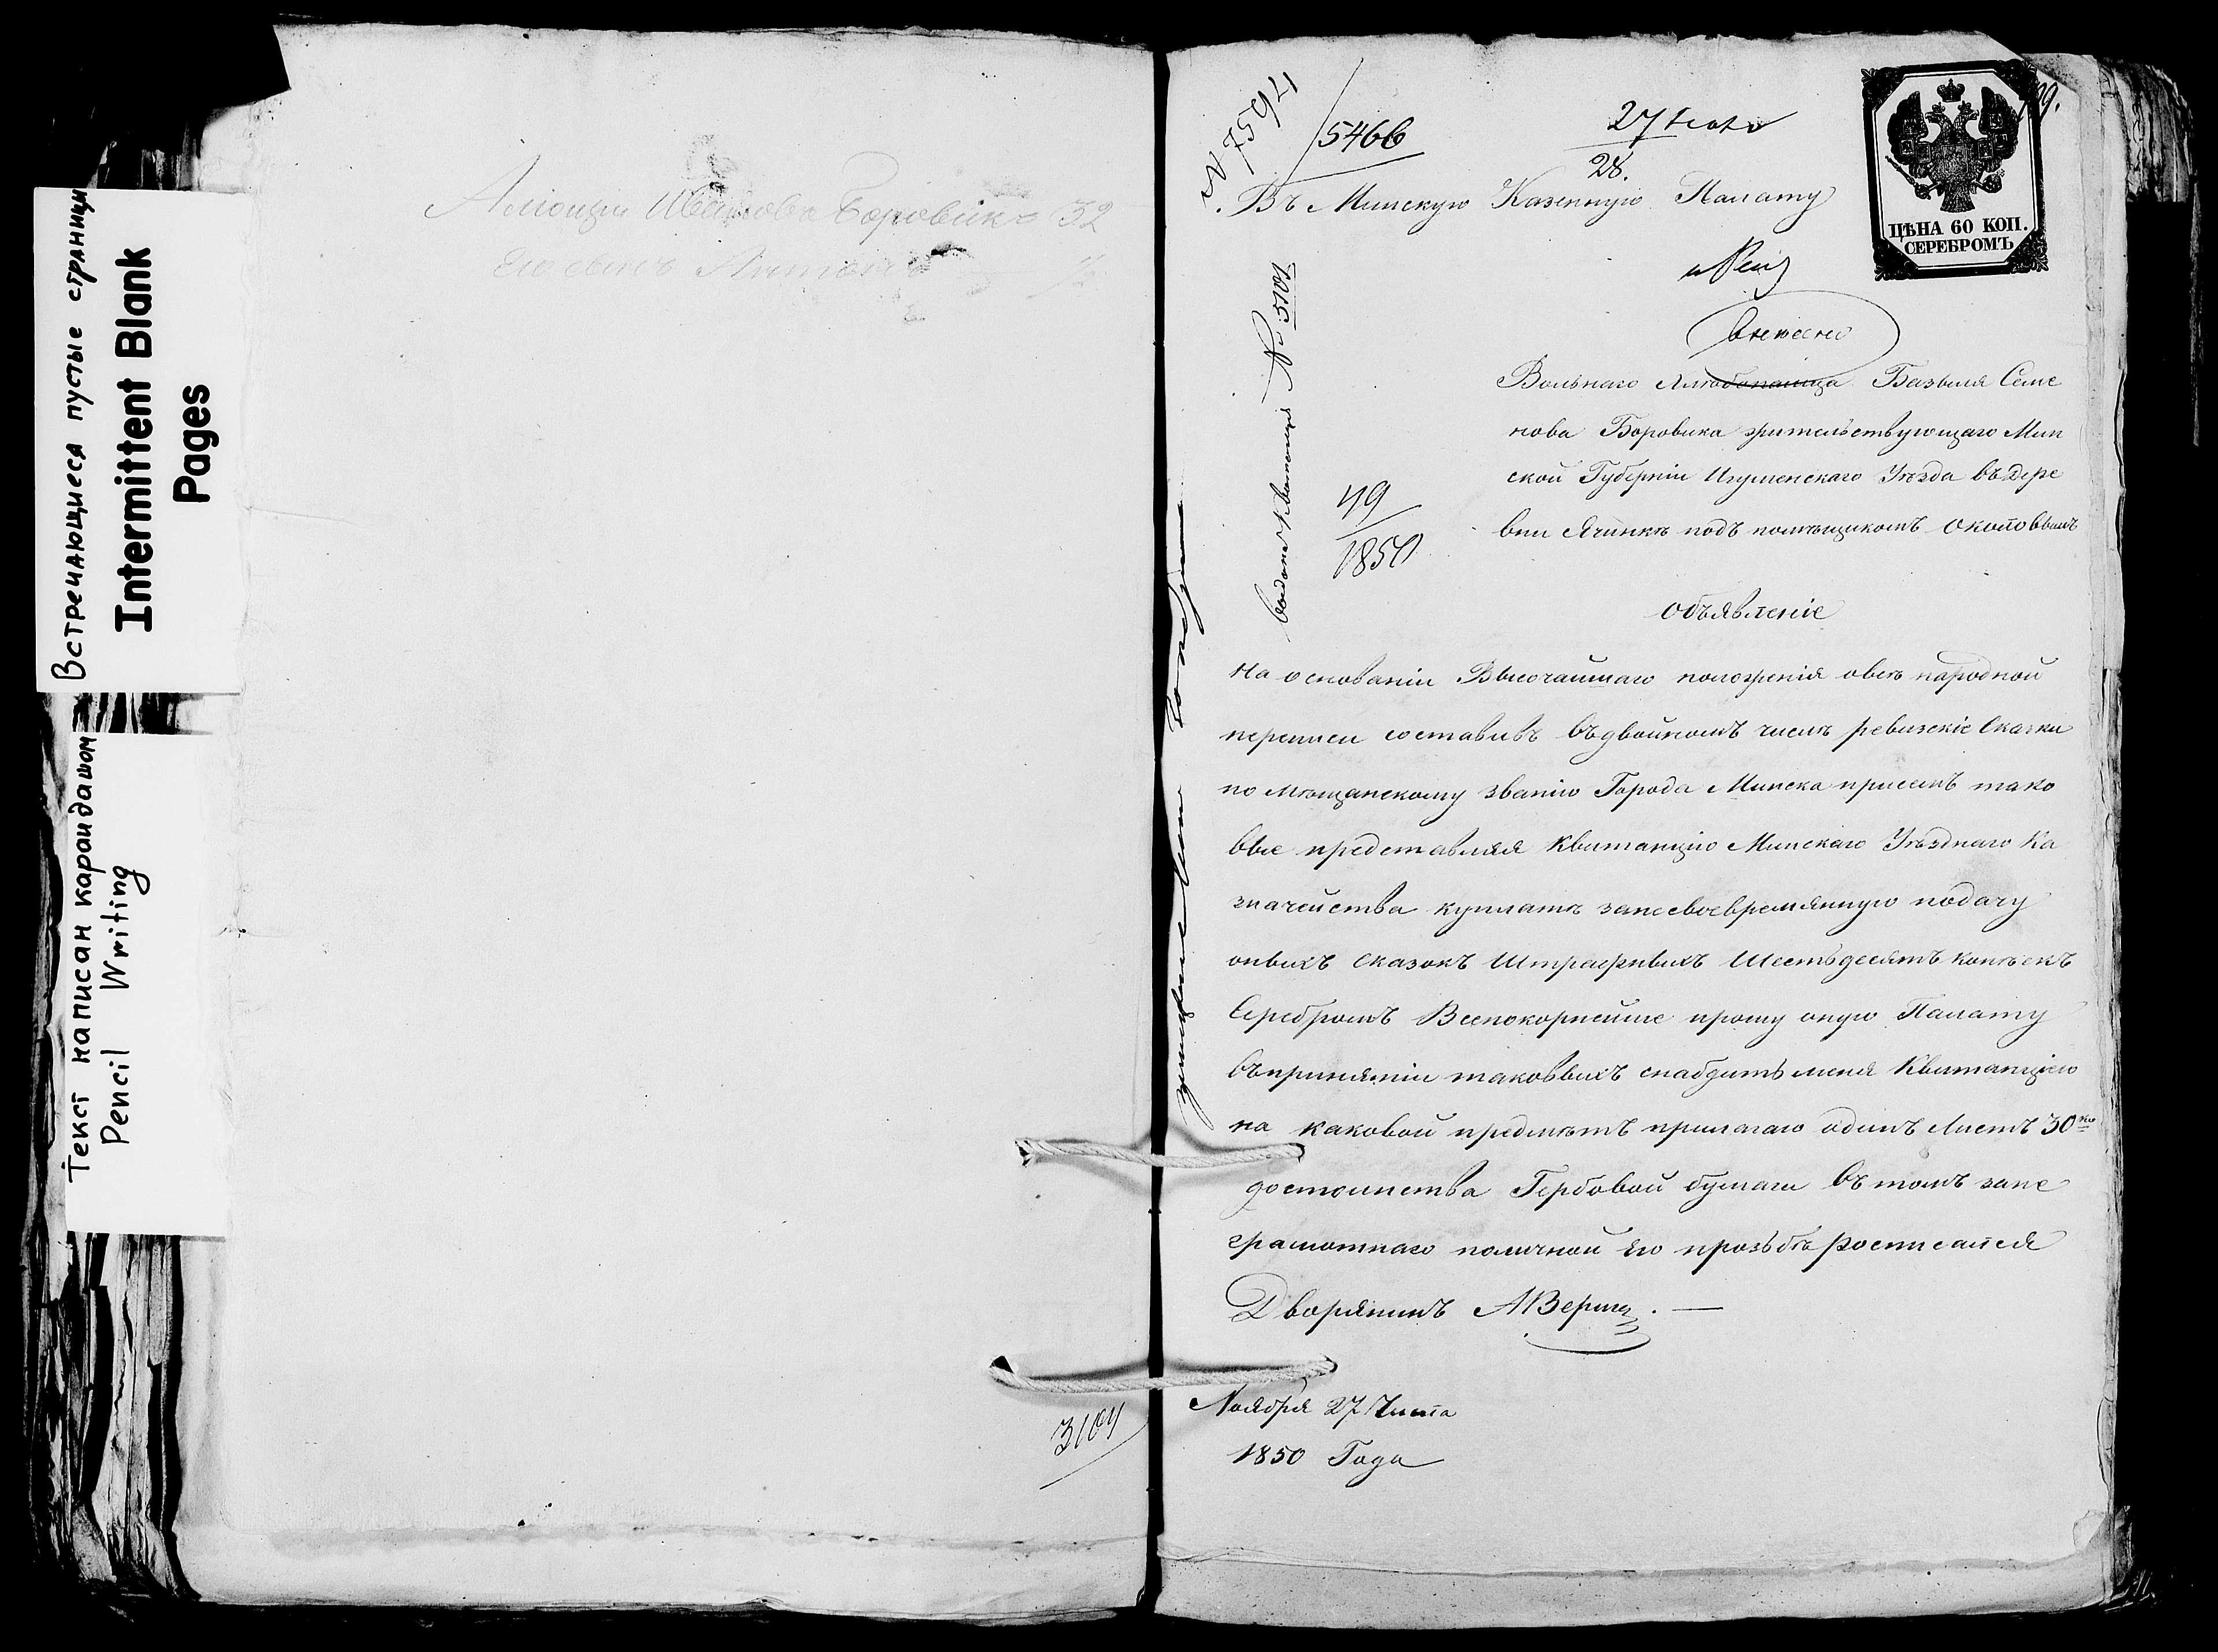 Встречающиеся пустые страницы
Intermittent Blank
Pages
Текст написан карандашом
Pencil Writing
Ивановъ Боровикъ 32
Его сынъ Антонъ 1/2
3104
N 7594
5466
27
28.
ЦѢНА 60 КОП.
СЕРЕБРОМЪ
Въ Минскую Казенную Палату
№ 5101
49
1850
Вольнаго Людопанца Базыля Семе
нова Боровика жительствующаго Мин
ской Губерніи Игуменскаго Уѣзда въ дере
вни Ячинкѣ подъ помѣщикомъ
Объявленіе
На основаніи Высочайшаго положенія овсѣ народной
переписи составивъ въ двойномъ числѣ ревизскіе Сказки
по Мѣщанскому званію Города Минска присемъ тако
вые представляя Квитанцію Минскаго Уѣзднаго Ка
значейства куплатѣ занесвоевремянную подачу
оныхъ Сказокъ Штрафныхъ Шестьдесятъ копѣекъ
Серебромъ Всепокорнейше прошу оную Палату
въпринятіи таковыхъ снабдить меня Квитанціею
на каковой предмѣтъ прилагаю одинъ Листъ 30 ко
достоинства Гербовой бумаги въ томъ зане
грамотнаго поличной его прозьбѣ росписался
Дворянинъ
Ноября 27 Числа
1850 Года